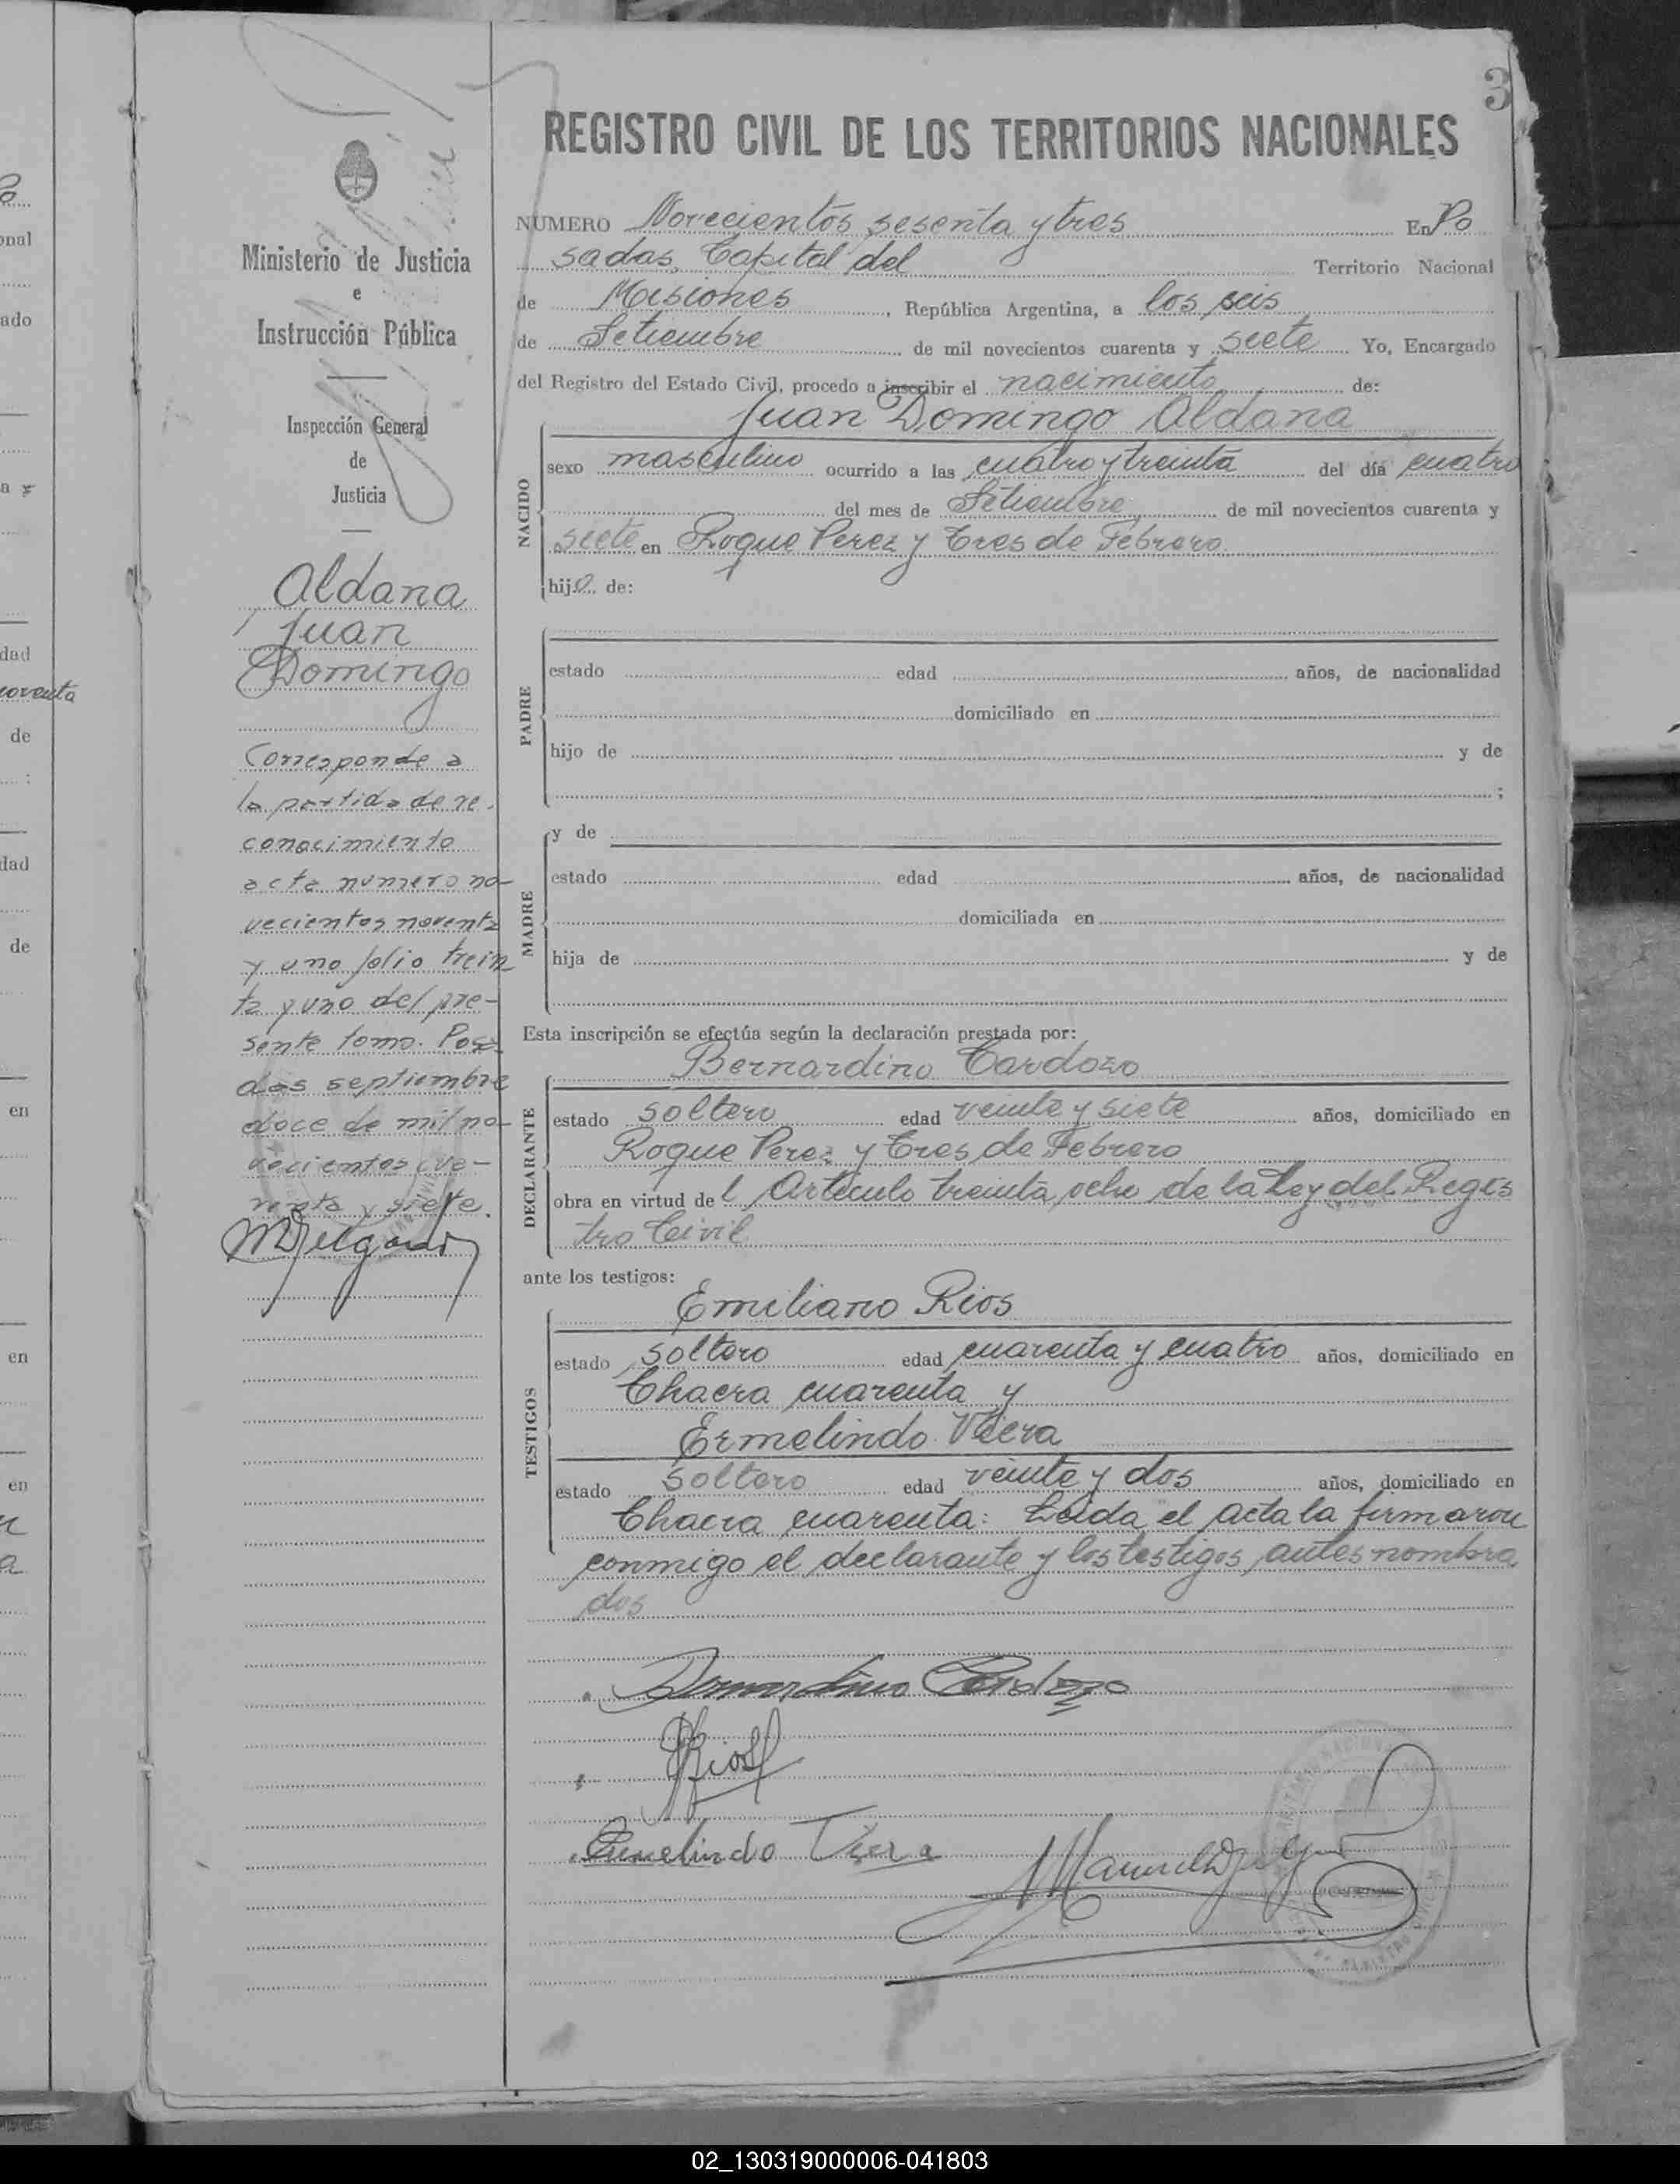 3
REGISTRO CIVIL DE LOS TERRITORIOS NACIONALES
Ministerio de Justicia
e
Instrucción Pública
Inspección General
de
Justicia
Aldana
Juan
Domingo
Corresponde a
la partida de re-
conocimiento
acta numero no-
vecientos noventa
y uno folio trein
ta y uno del pre-
sente tomo. Posa
das septiembre
doce de mil no-
vecientos cua-
renta y siete.
MDelgado
NUMERO Novecientos sesenta y tres En Po
sadas, Capital del Territorio Nacional
de Misiones, República Argentina, a los seis
de Setiembre de mil novecientos cuarenta y siete Yo, Encargado
del Registro del Estado Civil, procedo a inscribir el nacimiento de:
Juan Domingo Aldana
NACIDO
sexo masculino ocurrido a las cuatro y treinta del día cuatro
del mes de Setiembre de mil novecientos cuarenta y
siete en Roque Perez y Tres de Febrero
hijo de:
PADRE
estado edad años, de nacionalidad
domiciliado en
hijo de y de
;
MADRE
y de
estado edad años, de nacionalidad
domiciliada en
hija de y de
Esta inscripción se efectúa según la declaración prestada por:
Bernardino Cardozo
DECLARANTE
estado soltero edad veinte y siete años, domiciliado en
Roque Perez y Tres de Febrero
obra en virtud del Articulo treinta ocho de la Ley del Regis
tro Civil
ante los testigos:
TESTIGOS
Emiliano Rios
estado soltero edad cuarenta y cuatro años, domiciliado en
Chacra cuarenta y
Ermelindo Viera
estado soltero edad veinte y dos años, domiciliado en
Chacra cuarenta: Leida el acta la firmaron
conmigo el declarante y los testigos antes nombra
dos
Bernardino Cardozo
ERios
Ermelindo Viera
Manuel Delgado
02_130319000006-041803